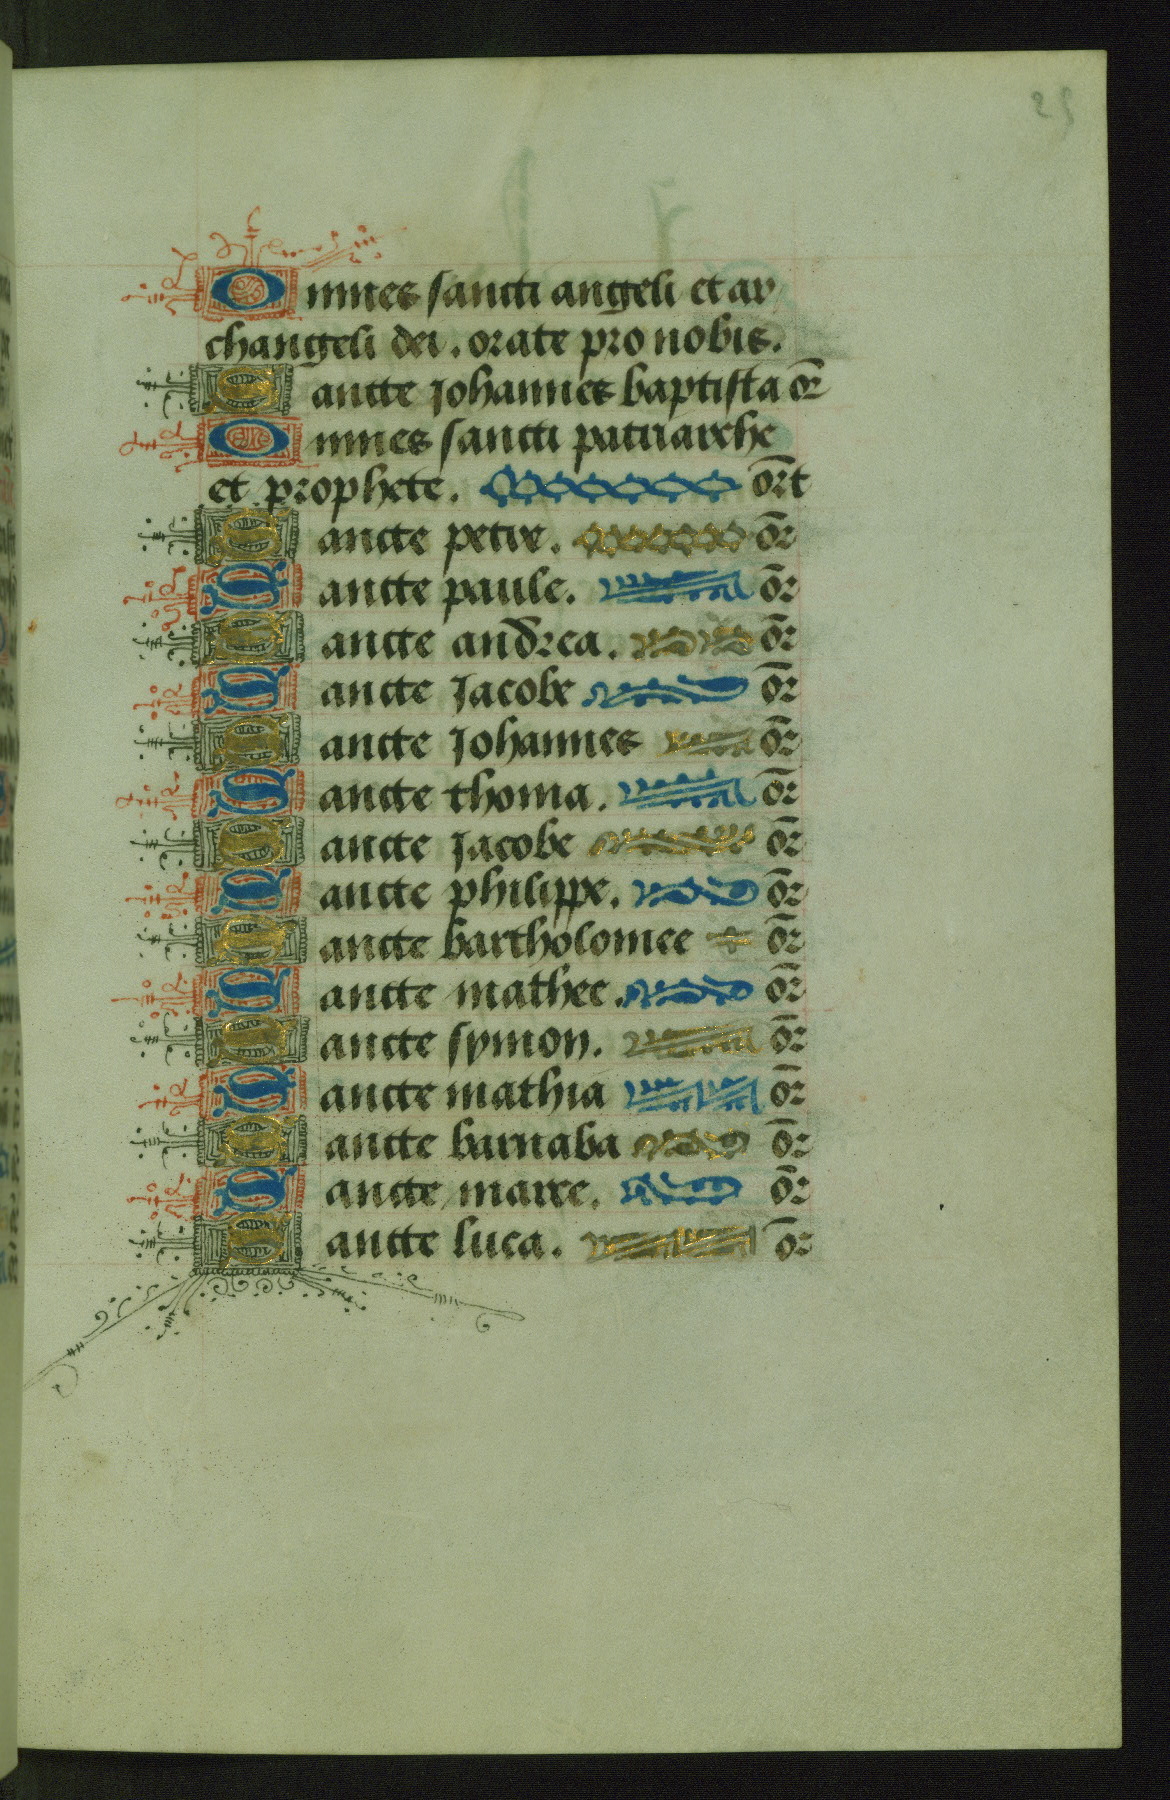 25
Omnes sancti angeli et ar
changeli dei. orate pro nobis.
Sancte Johannes baptista or̄
Omnes sancti patriarche
et prophete. or̄t
Sancte petre. or̄
Sancte paule. or̄
Sancte andrea. or̄
Sancte Jacobe or̄
Sancte Johannes or̄
Sancte thoma. or̄
Sancte Jacobe or̄
Sancte philippe. or̄
Sancte bartholomee or̄
Sancte mathee. or̄
Sancte symon. or̄
Sancte mathia or̄
Sancte barnaba or̄
Sancte marce. or̄
Sancte luca. or̄